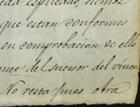 que estan conformes
en comprobacion de ello
del sucesor del vincu
No resta pues otra